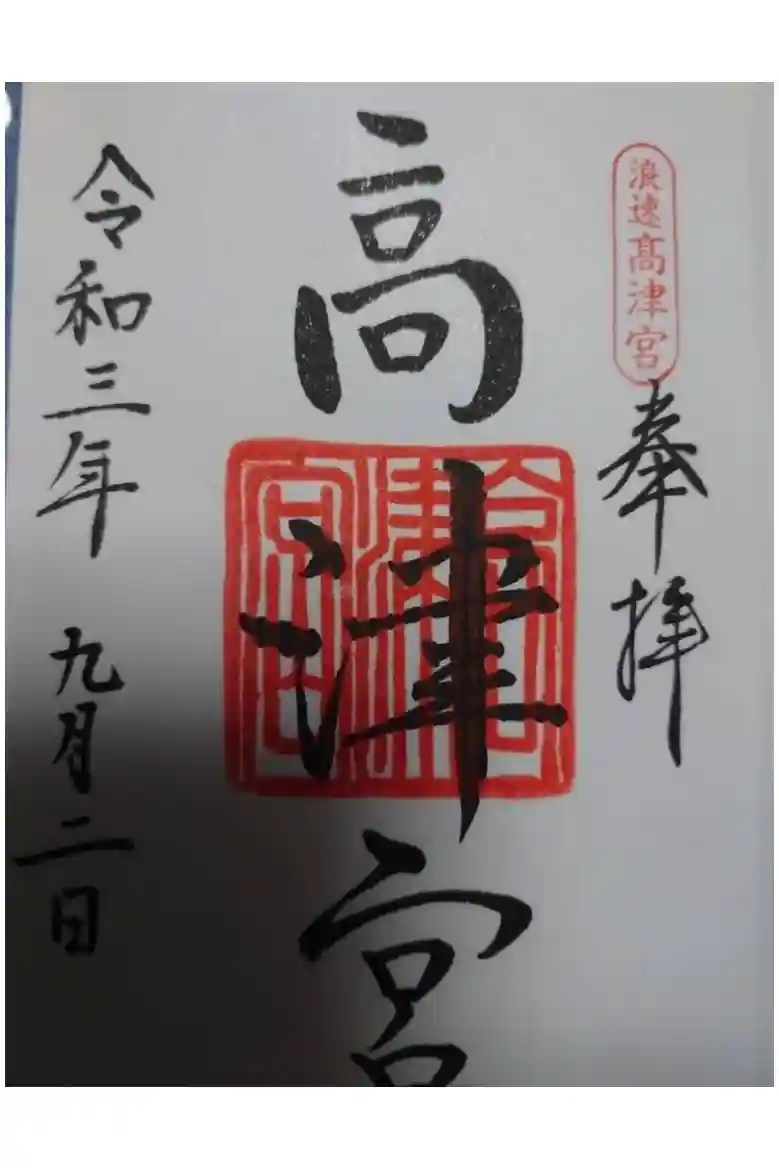 浪速髙津宮
奉拝
高津宮
高津宮
令和三年 九月二日